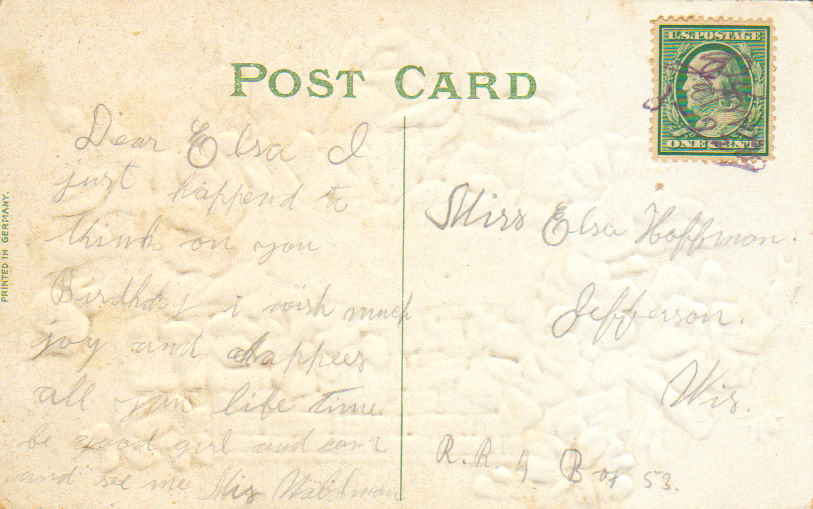 POST CARD
U.S. POSTAGE
ONE CENT
Dear Elsa I
just happend to
think on you
Birthday i wish much
joy and happees
all you life time
be good girl and com
and see me Mis
Miss Elsa Hoffman.
Jefferson.
Wis.
R. R. 4 Box 53.
PRINTED IN GERMANY.